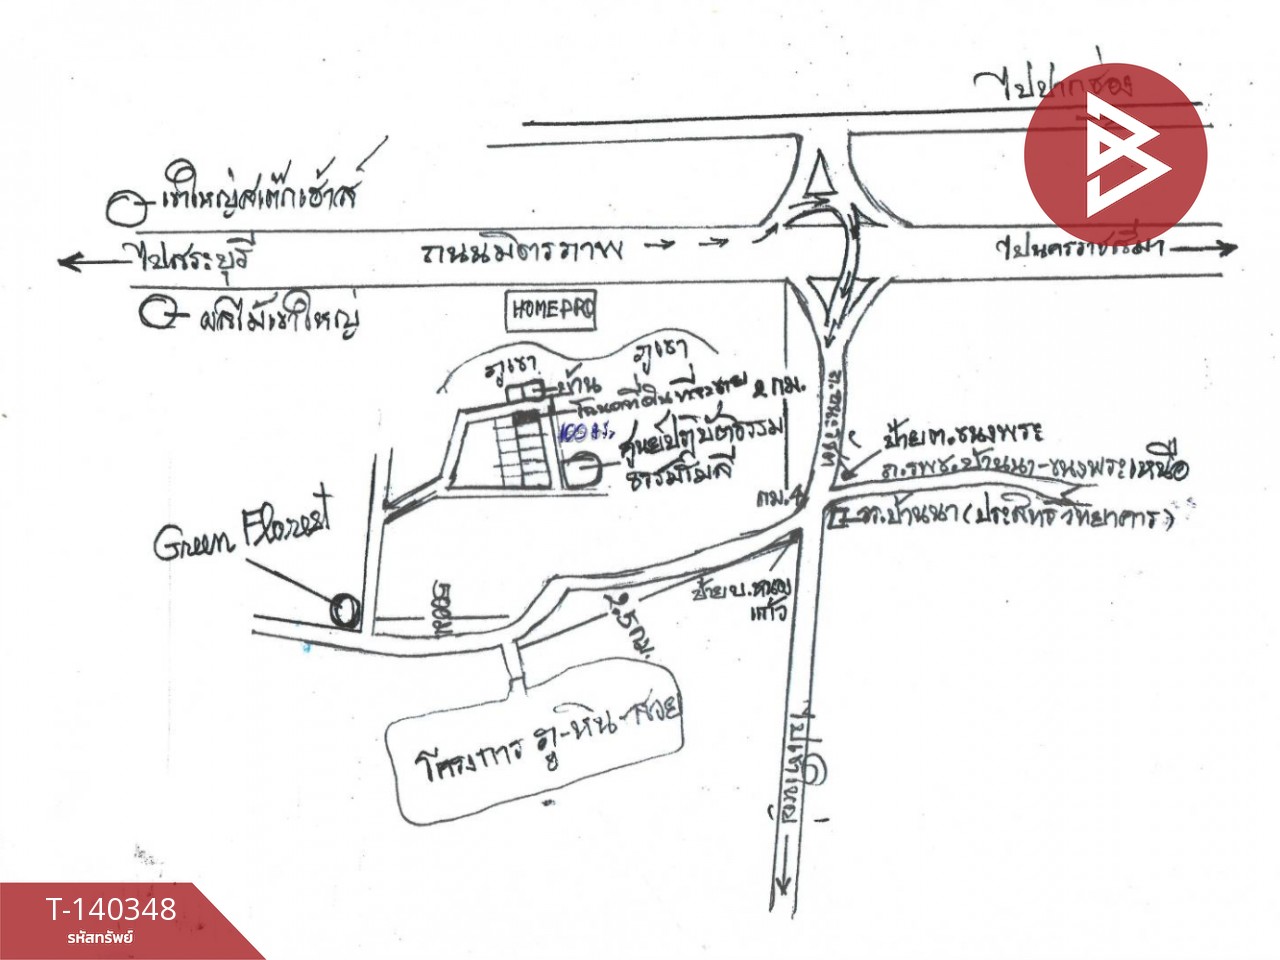 ไปปากช่อง
เขาใหญ่สเต๊กเฮ้าส์
ไปสระบุรี
ถนนมิตรภาพ
ไปนครราชสีมา
ผลไม้เขาใหญ่
HOMEPRO
ภูเขา
ภูเขา
บ้าน
2 กม.
ศูนย์ปฏิบัติธรรม
ธรรมโมลี
ป้าย ต.ขนงพระ
ถ.รพช.บ้านนา-ขนงพระเหนือ
กม.4
รร.บ้านนา(ประสิทธิ์วิทยาคาร)
Green Florest
500 ม
ป้าย บ.หนอง
แก้ว
2.5 กม.
โครงการ ภู-หิน-สวย
ไปเขาใหญ่
T-140348
รหัสทรัพย์